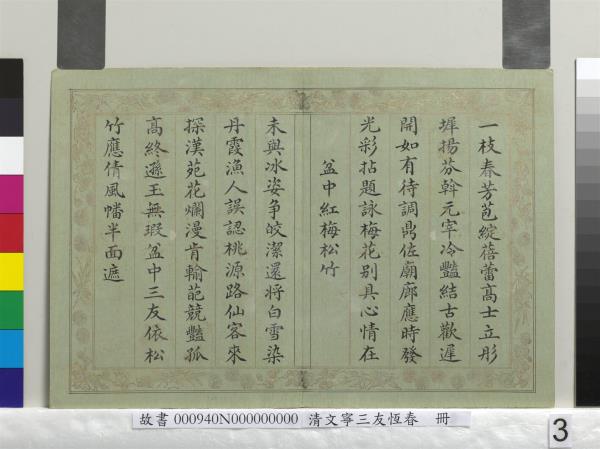 一枝春芳苞綻蓓蕾高士立彤
墀揚芬幹元宰冷豔結古歡遲
開如有待調鼎佐廟廊應時發
光彩拈題詠梅花別具心情在
盆中紅梅松竹
未與冰姿爭皎潔還將白雪染
丹霞漁人誤認桃源路仙客來
探漢苑花爛漫肯輸葩競豔孤
高終遜玉無瑕盆中三友依松
竹應倩風幡半面遮
故書 000940N000000000 清文寧三友恆春 冊
3